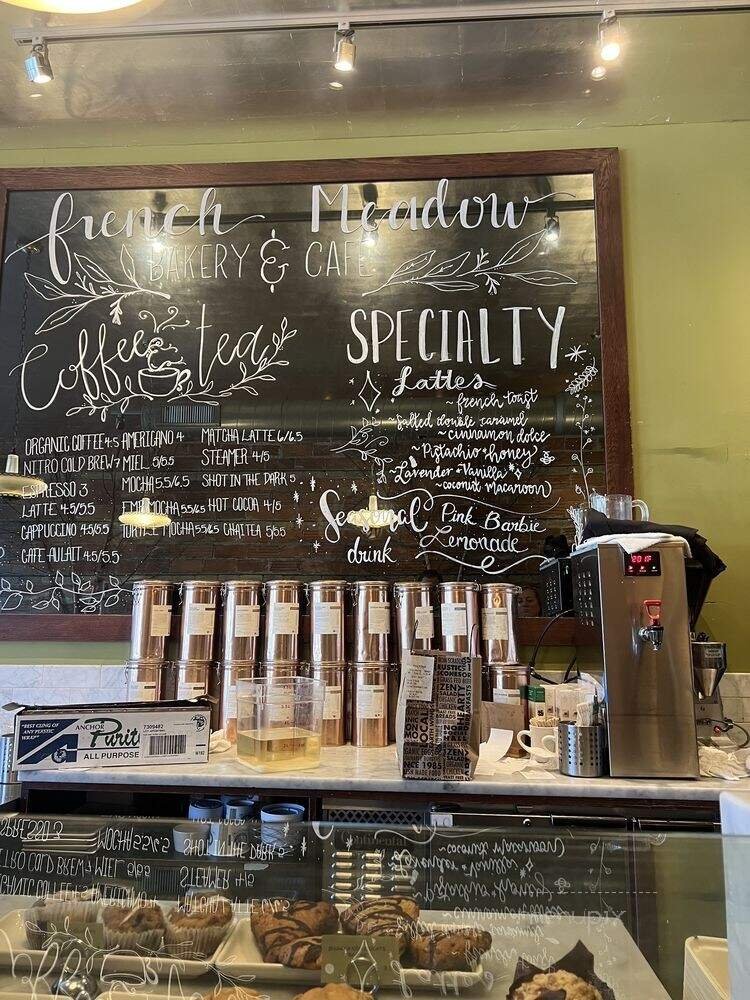 french Meadow
BAKERY & CAFE
Coffee tea
ORGANIC COFFEE 4.5
NITRO COLD BREW 7
ESPRESSO 3
LATTE 4.5/5.5
CAPPUCCINO 4.5/5.5
CAFE AULAIT 4.5/5.5
AMERICANO 4
MIEL 5/5.5
MOCHA 5.5/6.5
MOCHA 5.5/6.5
TURTLE MOCHA 5.5/6.5
MATCHA LATTE 6/6.5
STEAMER 4/5
SHOT IN THE DARK 5
HOT COCOA 4/5
CHAI TEA 5/5.5
SPECIALTY
Lattes
~ french toast
~ Salted double caramel
~ cinnamon dolce
~ Pistachio + honey
~ Lavender + Vanilla
~ coconut macaroon
Seasonal drink
Pink Barbie
Lemonade
201F
"BEST CLING OF
ANY PLASTIC
WRAP"
ANCHOR
Purit
7309482
ALL PURPOSE
RUSTIC
SCONES
ZEN
LOCAL
SINCE 1985
Continental